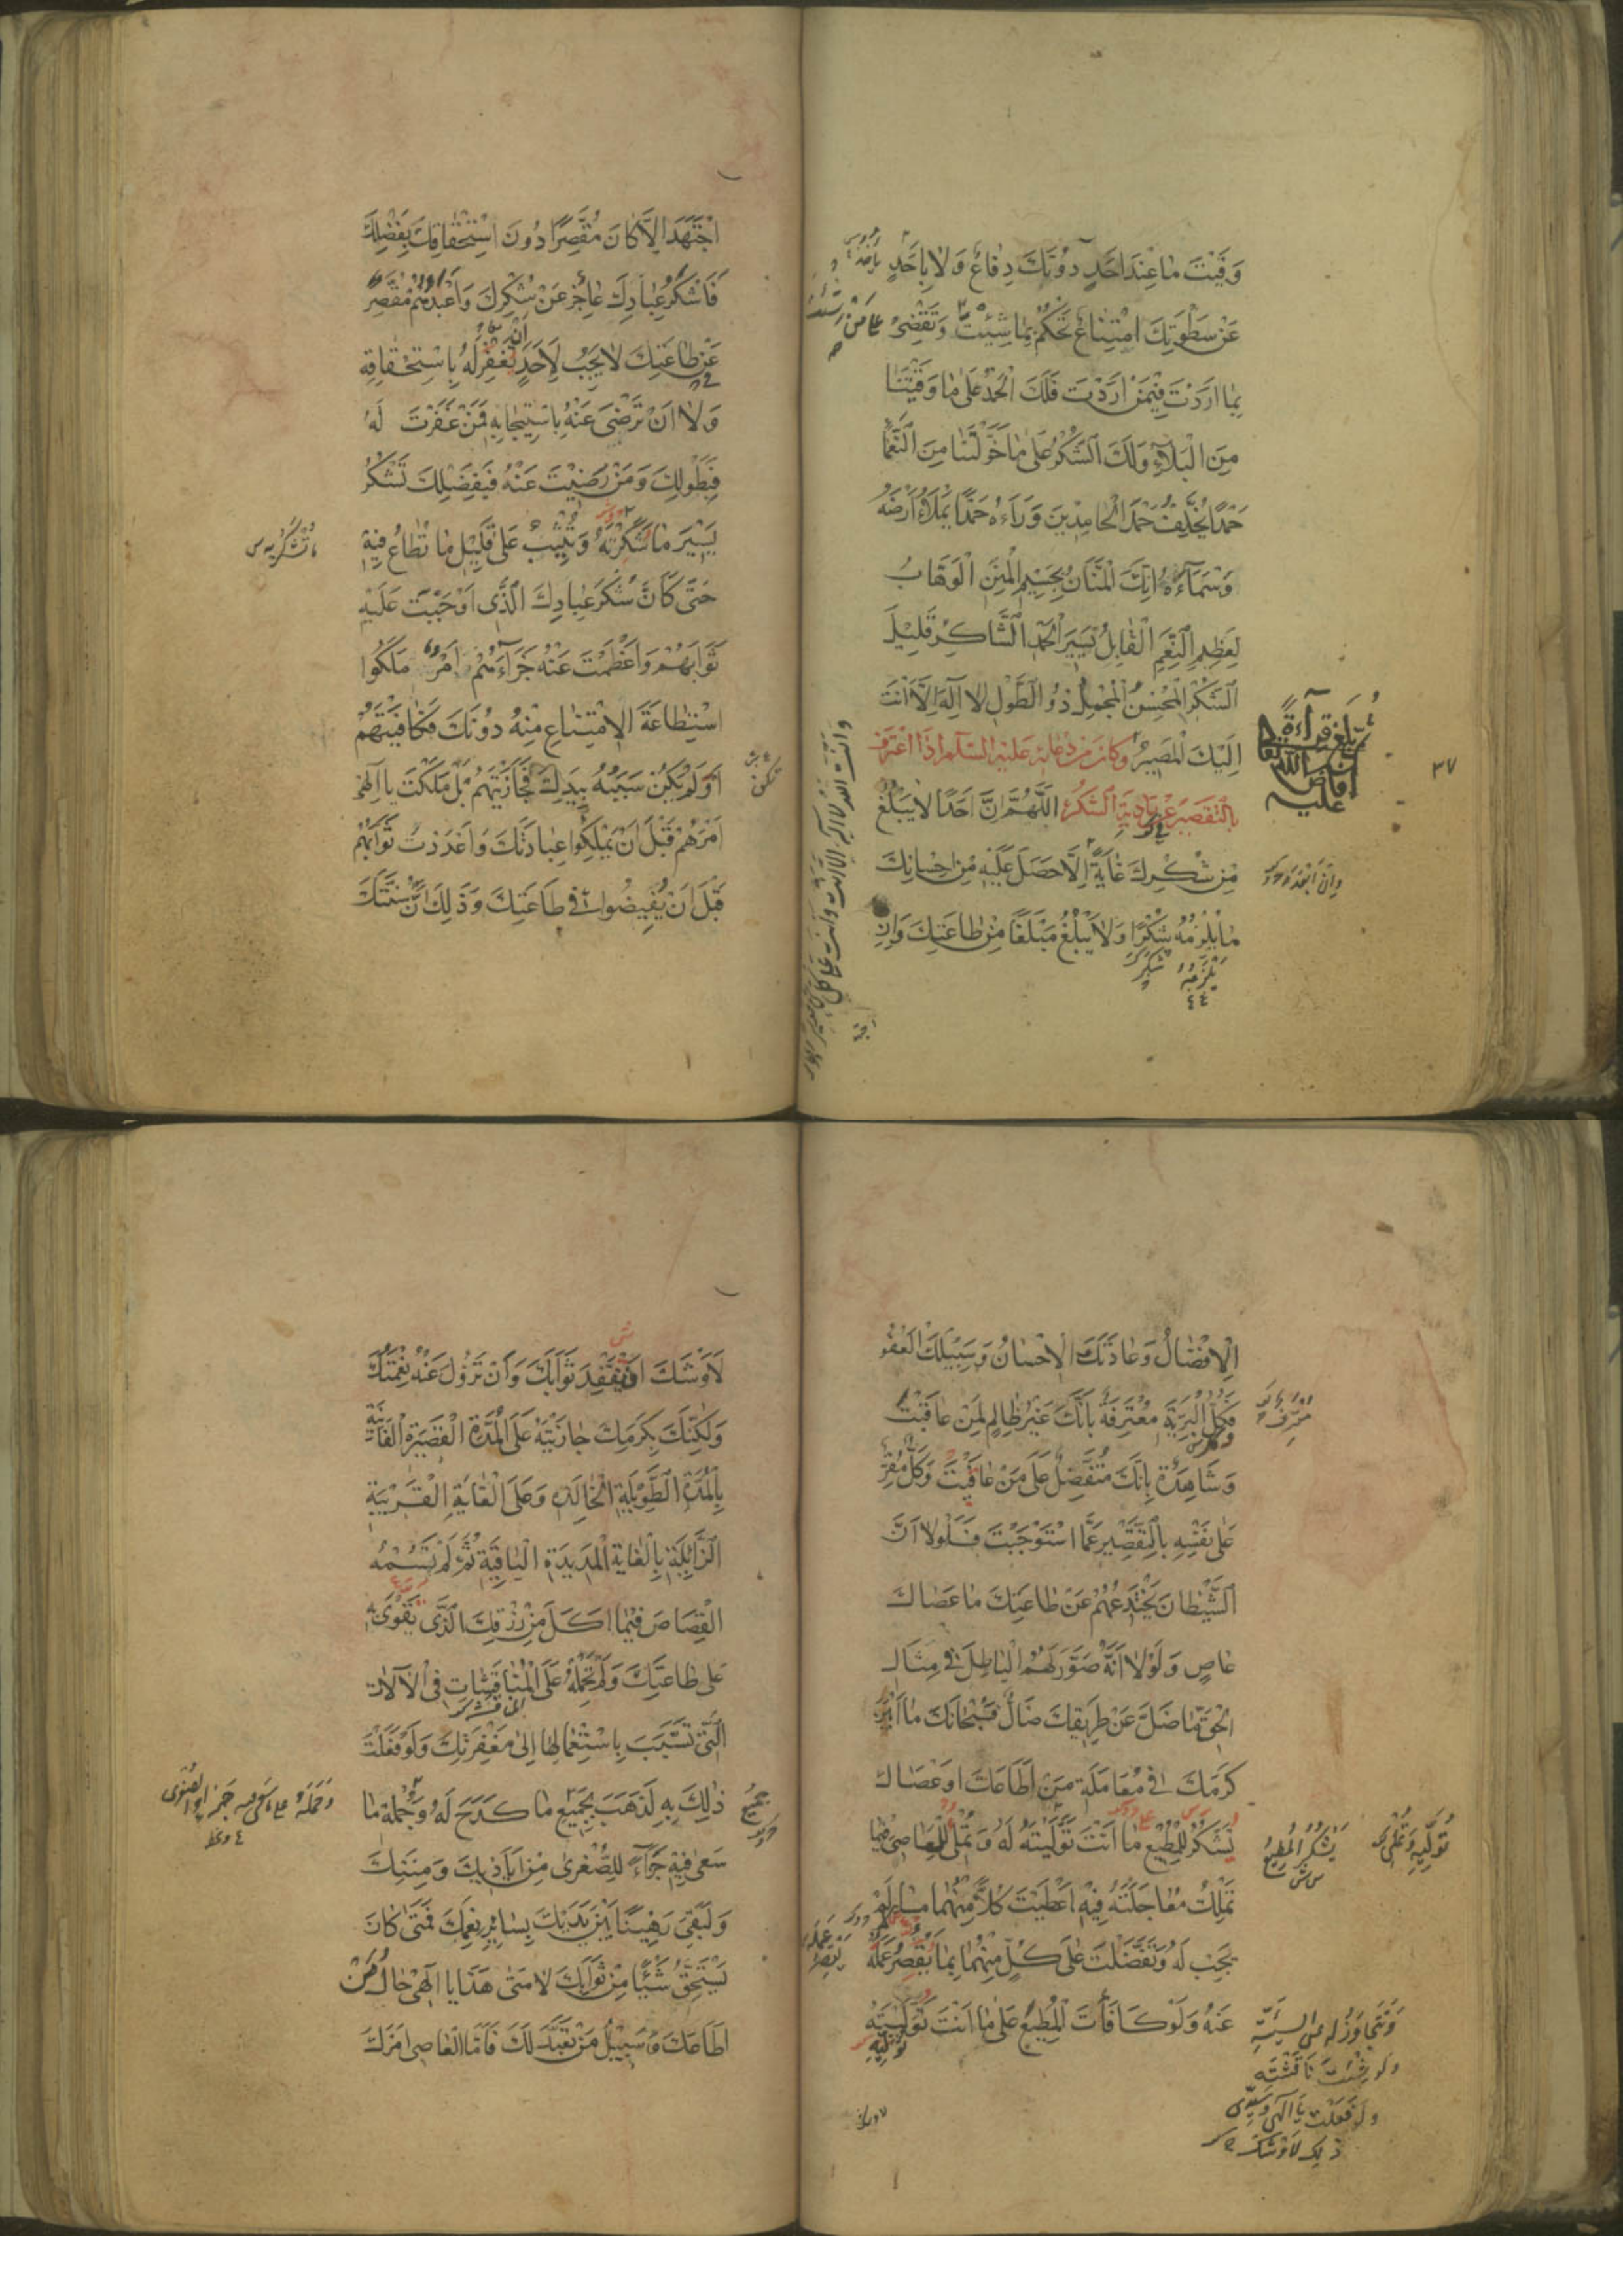 وَقَيْتَ مَا عِنْدَ اَحَدٍ دُونَكَ دِفَاعٌ وَلَا بِاَحَدٍ
عَنْ سَطْوَتِكَ امْتِنَاعٌ تَحْكُمُ بِمَا شِئْتَ وَتَقْضِىْ
بِمَا اَرَدْتَ فِيْمَنْ اَرَدْتَ فَلَكَ الْحَمْدُ عَلٰى مَا وَقَيْتَنَا
مِنَ الْبَلَآءِ وَلَكَ الشُّكْرُ عَلٰى مَا خَوَّلْتَنَا مِنَ النَّعْمَا
حَمْدًا يُخَلِّفُ حَمْدَ الْحَامِدِيْنَ وَرَآءَهُ حَمْدًا يَمْلَاُ اَرْضَهُ
وَسَمَآءَهُ اِنَّكَ الْمَنَّانُ بِجَسِيْمِ الْمِنَنِ الْوَهَّابُ
لِعَظِيْمِ النِّعَمِ الْقَابِلُ يَسِيْرَ الْحَمْدِ الشَّاكِرُ قَلِيْلَ
الشُّكْرِ الْمُحْسِنُ الْمُجْمِلُ ذُو الطَّوْلِ لَا اِلٰهَ اِلَّا اَنْتَ
اِلَيْكَ الْمَصِيْرُ وَكَانَ مِنْ دُعَائِهِ عَلَيْهِ السَّلَام اِذَا اعْتَرَفَ
بِالتَّقْصِيْرِ عَنْ تَأدِيَةِ الشُّكْرُ اَللّٰهُمَّ اِنَّ اَحَدًا لَا يَبْلُغُ
مِنْ شُكْرِكَ غَايَةً اِلَّا حَصَلَ عَلَيْهِ مِنْ اِحْسَانِكَ
مَا يُلْزِمُهُ شُكْرًا وَلَا يَبْلُغُ مَبْلَغًا مِنْ طَاعَتِكَ وَاِنِ
يَلْزَمُهُ
شكر
بَلَغَ قِرَآءَةً
اَفَاضَ اللّٰهُ تَعَالٰى
عَلَيْهِ
٣٧
اجْتَهَدَ اِلَّا كَانَ مُقَصِّرًا دُونَ اسْتِحْقَاقِكَ بِفَضْلِكَ
فَاَشْكَرُ عِبَادِكَ عَاجِزٌ عَنْ شُكْرِكَ وَاَعْبَدُهُمْ مُقَصِّرٌ
عَنْ طَاعَتِكَ لَا يَجِبُ لِاَحَدٍ اَنْ تَغْفِرَ لَهُ بِاسْتِحْقَاقِهِ
وَلَا اَنْ تَرْضٰى عَنْهُ بِاسْتِيْجَابِهِ فَمَنْ غَفَرْتَ لَهُ
فَبِطَوْلِكَ وَمَنْ رَضِيْتَ عَنْهُ فَبِفَضْلِكَ تَشْكُرُ
يَسِيْرَ مَا شَكَرْتَهُ وَتُثِيْبُ عَلٰى قَلِيْلِ مَا تُطَاعُ فِيْهِ
حَتّٰى كَاَنَّ شُكْرَ عِبَادِكَ الَّذِى اَوْجَبْتَ عَلَيْهِ
ثَوَابَهُمْ وَاَعْظَمْتَ عَنْهُ جَزَآءَهُمْ اَمْرٌ مَلَكُوا
اسْتِطَاعَةَ الْاِمْتِنَاعِ مِنْهُ دُونَكَ فَكَافَيْتَهُمْ
اَوْ لَمْ يَكُنْ سَبَبُهُ بِيَدِكَ فَجَازَيْتَهُمْ بَلْ مَلَكْتَ يَا اِلٰهِىْ
اَمْرَهُمْ قَبْلَ اَنْ يَمْلِكُوا عِبَادَتَكَ وَاَعْدَدْتَ ثَوَابَهُمْ
قَبْلَ اَنْ يُفِيْضُوا فِىْ طَاعَتِكَ وَذٰلِكَ اَنَّ سُنَّتَكَ
الْاِفْضَالُ وَعَادَتَكَ الْاِحْسَانُ وَسَبِيْلَكَ الْعَفْوُ
فَكُلُّ الْبَرِيَّةِ مُعْتَرِفَةٌ بِاَنَّكَ غَيْرُ ظَالِمٍ لِمَنْ عَاقَبْتَ
وَشَاهِدَةٌ بِاَنَّكَ مُتَفَضِّلٌ عَلٰى مَنْ عَافَيْتَ وَكُلٌّ مُقِرٌّ
عَلٰى نَفْسِهِ بِالتَّقْصِيْرِ عَمَّا اسْتَوْجَبْتَ فَلَوْلَا اَنَّ
الشَّيْطَانَ يَخْتَدِعُهُمْ عَنْ طَاعَتِكَ مَا عَصَاكَ
عَاصٍ وَلَوْلَا اَنَّهُ صَوَّرَ لَهُمُ الْبَاطِلَ فِىْ مِثَالِ
الْحَقِّ مَا ضَلَّ عَنْ طَرِيْقِكَ ضَالٌّ فَسُبْحَانَكَ مَا اَبْيَنَ
كَرَمَكَ فِىْ مُعَامَلَةِ مَنْ اَطَاعَكَ اَوْ عَصَاكَ
تَشْكُرُ لِلْمُطِيْعِ مَا اَنْتَ تَوَلَّيْتَهُ لَهُ وَتُمْلِىْ لِلْعَاصِىْ فِيْمَا
تَمْلِكُ مُعَاجَلَتَهُ فِيْهِ اَعْطَيْتَ كُلًّا مِنْهُمَا مَا لَمْ
يَجِبْ لَهُ وَتَفَضَّلْتَ عَلٰى كُلٍّ مِنْهُمَا بِمَا يَقْصُرُ عَمَلُهُ
عَنْهُ وَلَوْ كَافَاْتَ الْمُطِيْعَ عَلٰى مَا اَنْتَ تَوَلَّيْتَهُ
يَشْكُرُ الْمُطِيعُ
وَتَتَجَاوَزُ لَهُ عَنِ السَّيِّئَةِ
وَلَوْ شِئْتَ نَاقَشْتَهُ
وَلَوْ فَعَلْتَ يَا اِلٰهِى وَسَيِّدِى
ذٰلِكَ لَاَوْشَكَ
لَاَوْشَكَ اَنْ يَفْقِدَ ثَوَابَكَ وَاَنْ تَزُوْلَ عَنْهُ نِعْمَتُكَ
وَلٰكِنَّكَ بِكَرَمِكَ جَازَيْتَهُ عَلَى الْمُدَّةِ الْقَصِيْرَةِ الْفَانِيَةِ
بِالْمُدَّةِ الطَّوِيْلَةِ الْخَالِدَةِ وَعَلَى الْغَايَةِ الْقَرِيْبَةِ
الزَّائِلَةِ بِالْغَايَةِ الْمَدِيْدَةِ الْبَاقِيَةِ ثُمَّ لَمْ تَسُمْهُ
الْقِصَاصَ فِيْمَا اَكَلَ مِنْ رِزْقِكَ الَّذِى يَقْوٰى بِهِ
عَلٰى طَاعَتِكَ وَلَمْ تَحْمِلْهُ عَلَى الْمُنَاقَشَاتِ فِى الْاٰلَاتِ
الَّتِىْ تَسَبَّبَ بِاسْتِعْمَالِهَا اِلٰى مَغْفِرَتِكَ وَلَوْ فَعَلْتَ
ذٰلِكَ بِهِ لَذَهَبَ بِجَمِيْعِ مَا كَدَحَ لَهُ وَجُمْلَةِ مَا
سَعٰى فِيْهِ جَزَآءً لِلصُّغْرٰى مِنْ اَيَادِيْكَ وَمِنَنِكَ
وَلَبَقِىَ رَهِيْنًا بَيْنَ يَدَيْكَ بِسَائِرِ نِعَمِكَ فَمَتٰى كَانَ
يَسْتَحِقُّ شَيْئًا مِنْ ثَوَابِكَ لَا مَتٰى هٰذَا يَا اِلٰهِىْ حَالُ مَنْ
اَطَاعَكَ وَسَبِيْلُ مَنْ تَعَبَّدَ لَكَ فَاَمَّا الْعَاصِىْ اَمْرَكَ